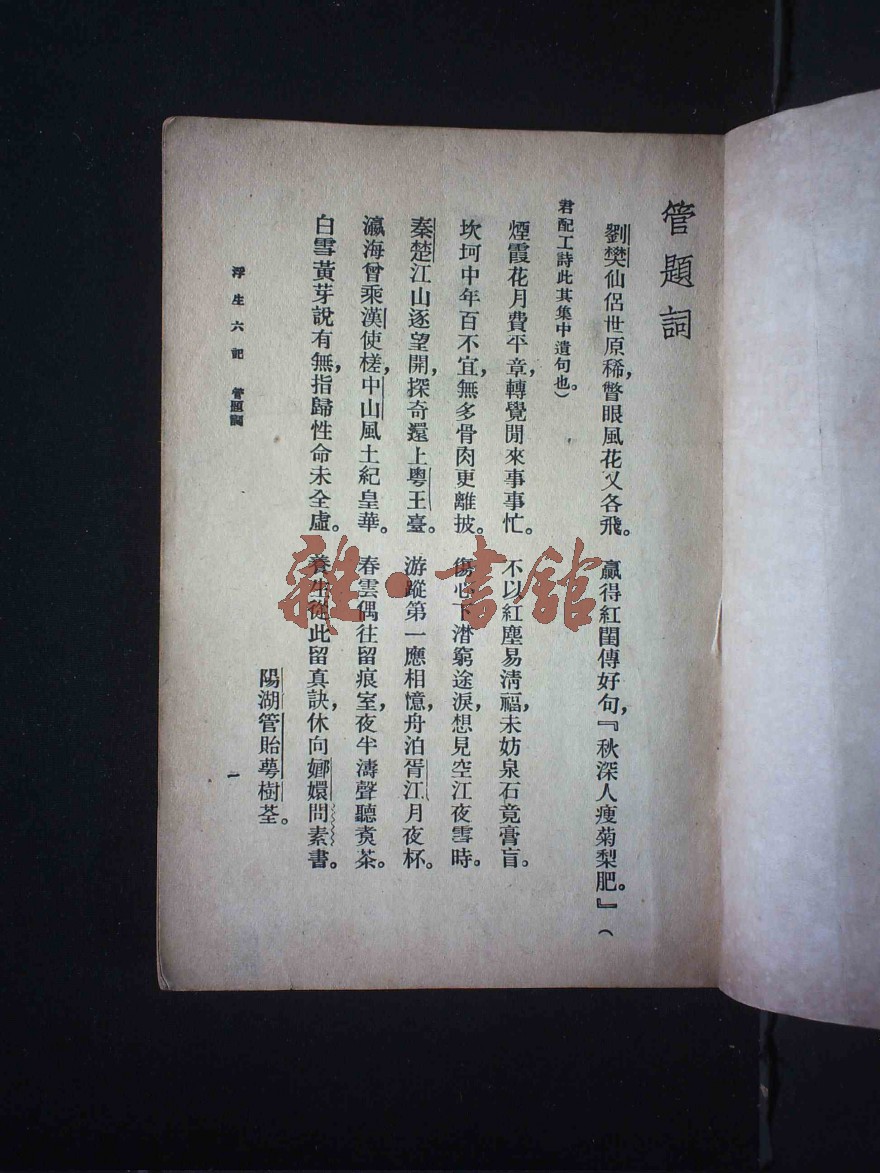 管題詞
劉樊仙侶世原稀，瞥眼風花又各飛。贏得紅閨傳好句，『秋深人瘦菊梨肥。』（
君配工詩此其集中遺句也。）
煙霞花月費平章，轉覺閒來事事忙。不以紅塵易清福，未妨泉石竟膏肓。
坎坷中年百不宜，無多骨肉更離披。傷心下潸窮途淚，想見空江夜雪時。
秦楚江山逐望開，探奇還上粵王臺。游蹤第一應相憶，舟泊胥江月夜杯。
瀛海曾乘漢使槎，中山風土紀皇華。春雲偶住留痕室，夜半濤聲聽煑茶。
白雪黃芽說有無，指歸性命未全虛。養生從此留真訣，休向嫏嬛問素書。
陽湖管貽蕚樹荃。
浮生六記　管題詞
一
雜·書館